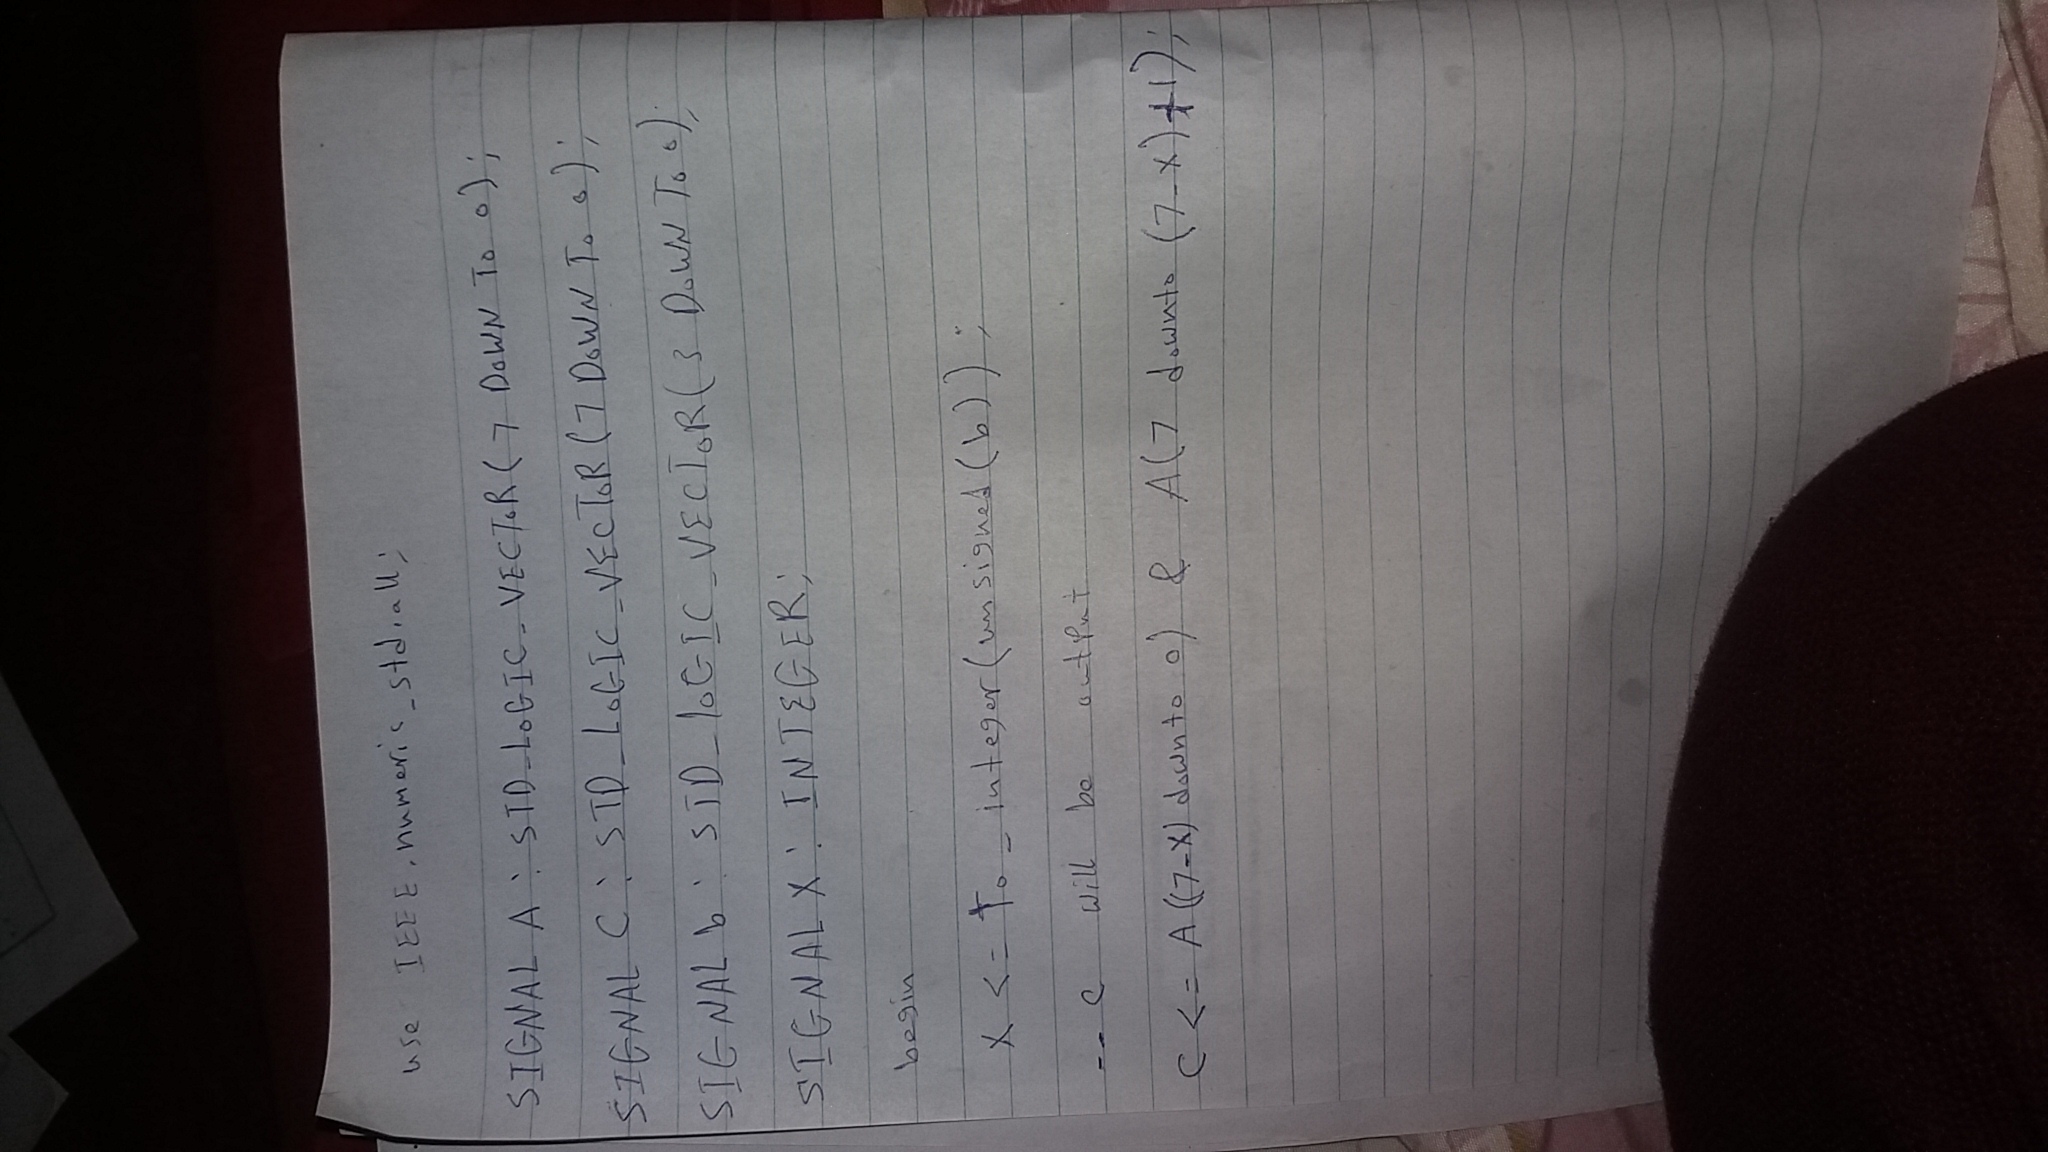 use IEEE.numeric_std.all;
SIGNAL A : STD_LOGIC_VECTOR (7 DOWN TO 0);
SIGNAL C : STD_LOGIC_VECTOR (7 DOWN TO 0);
SIGNAL b : STD_lOGIC_VECTOR (3 DOWN TO 0);
SIGNAL X : INTEGER;
begin
X <= To_integer(unsigned(b));
-- C will be output
C <= A((7-X) downto 0) & A(7 downto (7-X)+1);